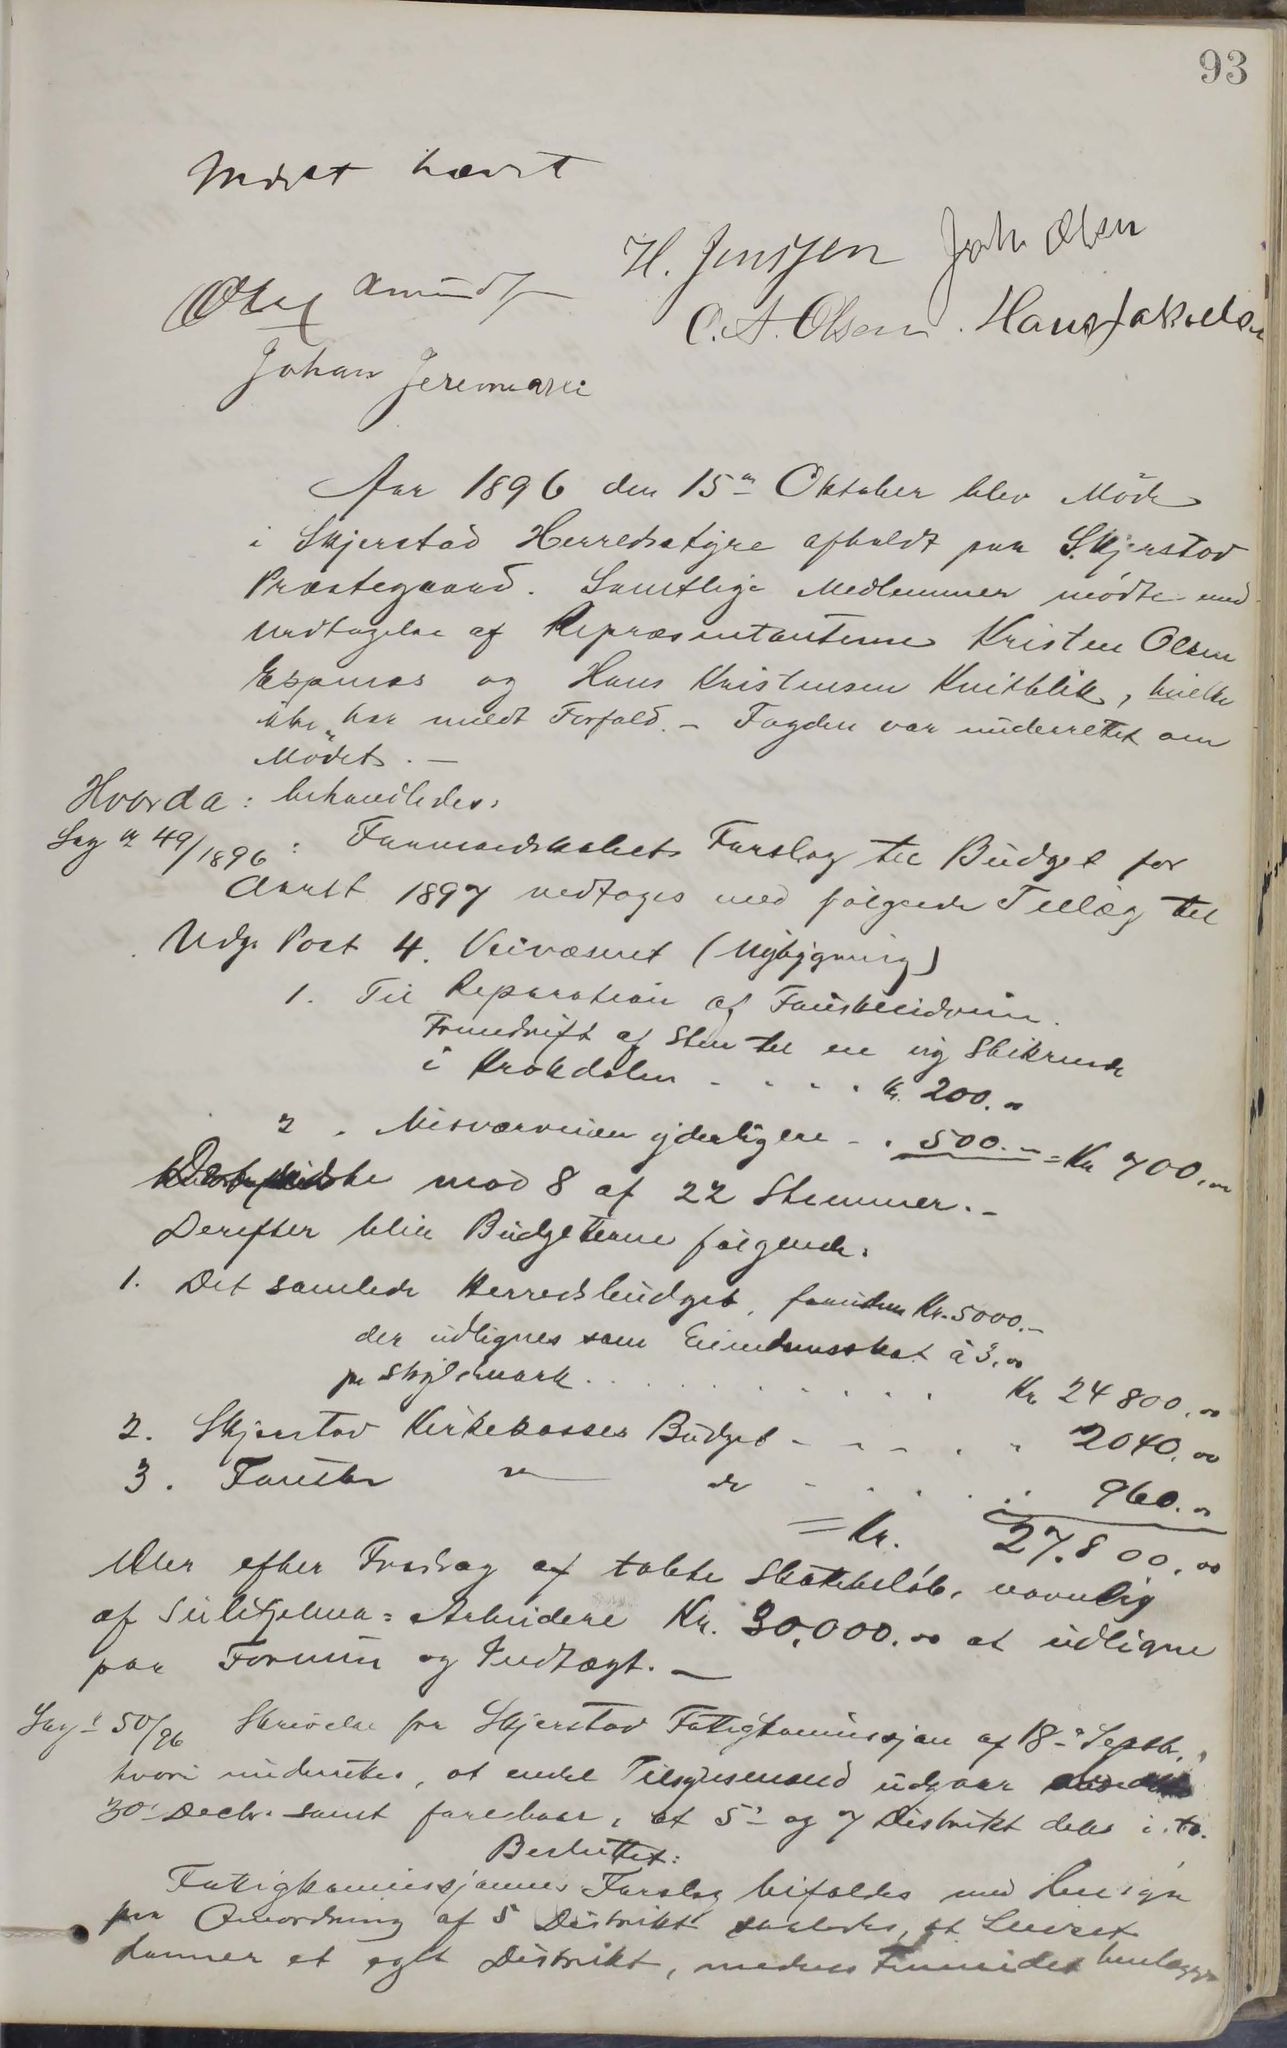 93
Mødet hævet
H. Jenssen Joh Olsen
Olaf Amunds
C. A. Olsen. Hans Jakobsen
Johan Jeremias
Aar 1896 den 15de Oktober blev Møde
i Skjerstad Herredsstyre afholdt paa Skjerstad
Præstegaard. Samtlige Medlemmer mødte med
Undtagelse af Repræsentanterne Kristen Olsen
og Hans Kristensen Kvitblik, hvilke
ikke har meldt Forfald. – Fogden var underrettet om
Mødet. –
Hvorda: behandledes:
Sag nr 49/1896: Formandskabets Forslag til Budget for
Aaret 1897 vedtoges med følgende Tillæg til
Udg. Post 4. Veivæsenet (Nybygning)
1. Til Reparation af Fauskeeidveien.
Fremdrift af Sten til en ny Stikrende
i Krokdalen - - - - Kr. 200.00
2. Misværveien yderligere - . 500.– = Kr 700.00
mod 8 af 22 Stemmer. –
Derefter blir Budgetterne følgende:
1. Det samlede Herredsbudget, foruden Kr. 5000.–
der udlignes som Eiendomsskat à 3.00
pr Skyldmark . . . . . . . Kr 24 800.00
2. Skjerstad Kirkekasses Budget - - - - . . 2040.00
3. Fauske " do - . . . . . 960.00
= Kr. 27.800.00
Eller efter Fradrag af tabte Skattebeløb, navnlig
af Sulitjelma-Arbeidere Kr. 30,000.00 at udligne
paa Formue og Indtægt. –
Sag nr 50/96 Skrivelse fra Skjerstad Fattigkommissjon af 18de Septb.,
hvori underrettes, at endel Tilsynsmænd udgaar
30 Decbr. samt foreslaar, at 5te og 7 Distrikt deles i to.
Besluttet:
Fattigkommissjonens Forslag bifaldes med Hensyn
paa Omordning af 5 Distrikt saaledes, at
danner et eget Distrikt, medens henlægges